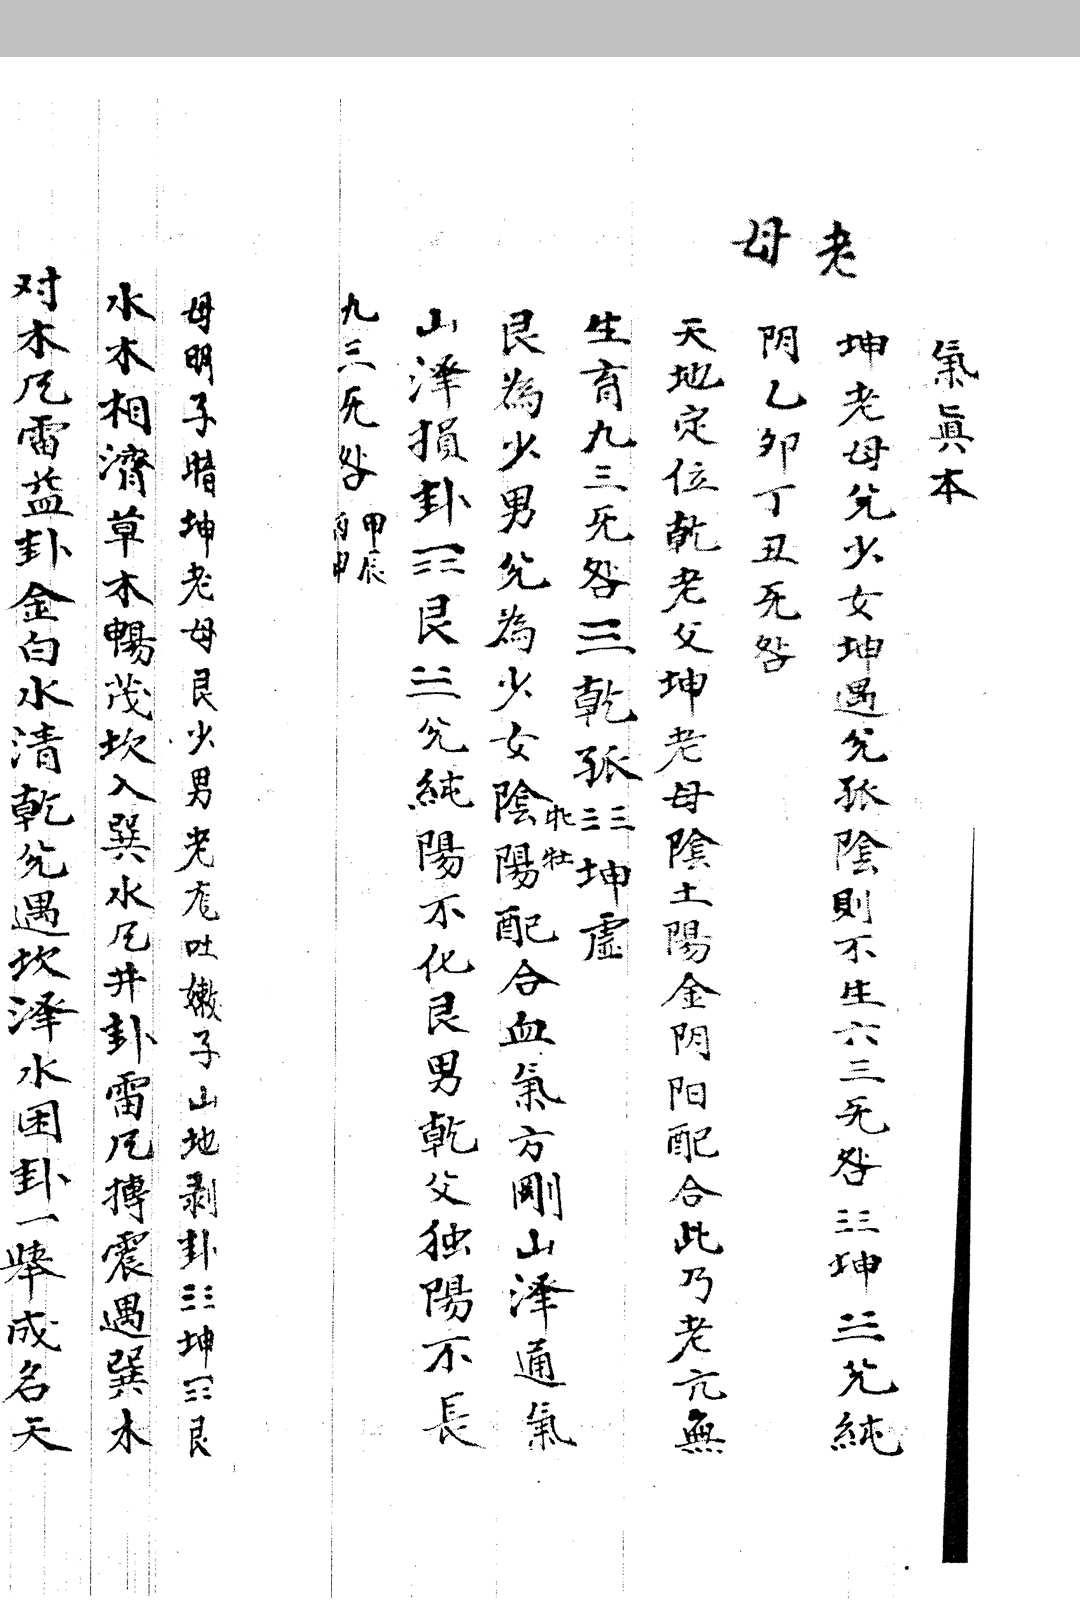 氣眞本
老母
坤老母兊少女坤遇兊孤陰則不生六三死咎☷坤☱兊純
阴乙卯丁丑死咎
天地定位乾老父坤老母陰土陽金阴阳配合此乃老亢無
生育九三死咎☰乾孤☷坤虛
牝牡
艮為少男兊為少女陰陽配合血氣方剛山澤通氣
山澤損卦☶艮☱兊純陽不化艮男乾父独陽不長
九三死咎
甲辰
丙申
母明子暗坤老母艮少男老尨吐嫩子山地剥卦☷坤☶艮
水木相濟草木暢茂坎入巽水凬井卦雷凬搏震遇巽木
对木凬雷益卦金白水清乾兊遇坎澤水困卦一舉成名天